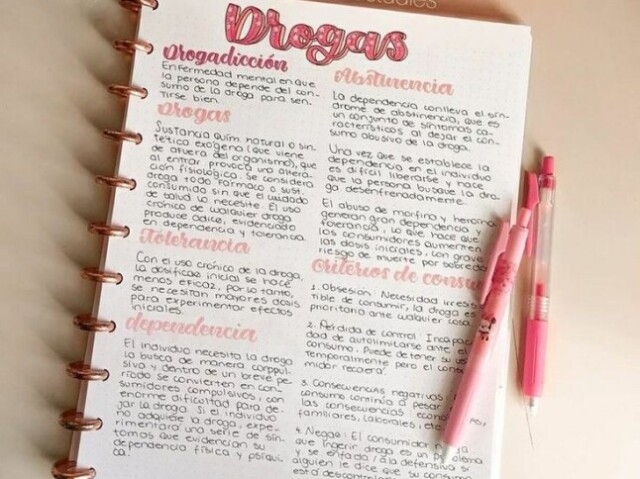 Drogas
Drogadicción
Enfermedad mental en que
la persona depende del con-
sumo de la droga para sen-
tirse bien.
Drogas
Sustancia Quím. natural o sin-
tética exógena (que viene
de afuera del organismo), que
al entrar provoca una altera-
ción fisiológica. Se considera
droga todo fármaco o sust.
consumida sin que el cuidado
de salud lo necesite. El uso
crónico de cualquier droga
produce adicc, evidenciado
en dependencia y tolerancia.
Tolerancia
Con el uso crónico de la droga,
la dosificac inicial se hace
menos eficaz, por lo tanto,
se necesitan mayores dosis
para experimentar efectos
iniciales.
dependencia
El individuo necesita la droga
la busca de manera compul-
siva y dentro de un breve pe-
riodo se convierten en con-
sumidores compulsivos, con
enorme dificultad para de-
jar la droga. Si el individuo
no adquiere la droga, expe-
rimentara una serie de sín-
tomas que evidencian su
dependencia física y psíqui-
ca.
Abstinencia
La dependencia conlleva el sín-
drome de abstinencia, que es
un conjunto de síntomas ca-
racterísticos al dejar el con-
sumo abusivo de la droga.
Una vez que se establece la
dependencia en el individuo
es difícil liberarse y hace
que la persona busque la dro-
ga desenfrenadamente.
El abuso de morfina y heroína
generan gran dependencia y
tolerancia, lo que hace que
los consumidores aumenten
las dosis iniciales, con grave
riesgo de muerte por sobredo
Criterios de consu
1. Obsesión: Necesidad irresis
tible de consumir, la droga es
prioritaria ante cualquier cosa.
2. Pérdida de control: Incapac
dad de autolimitarse ante el
consumo. Puede detener su
temporalmente pero el
midor recaerá.
3. Consecuencias negativas:
consumo continúa a pesar
las consecuencias
familiares, laborales, etc.
4. Negac: El consumidor
que ingerir droga es un problema
y se enfada / a la defensiva si
alguien le dice que su consumo
está descontrolado